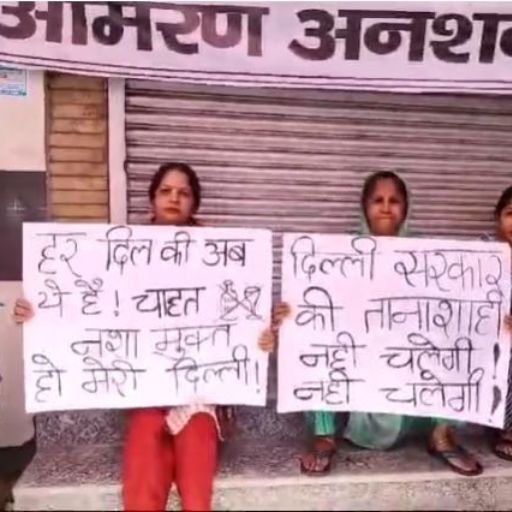 आमरण अनशन
हर दिल की अब
ये है! चाहत
नशा मुक्त
हो मेरी दिल्ली!
दिल्ली सरकार
की तानाशाही
नही चलेगी!
नही चलेगी!